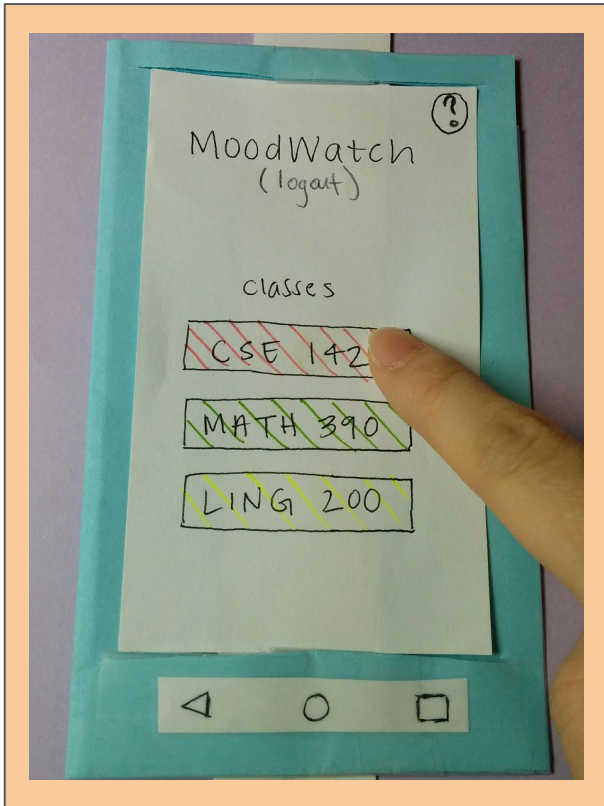 ?
MoodWatch
(logout)
classes
CSE 142
MATH 390
LING 200